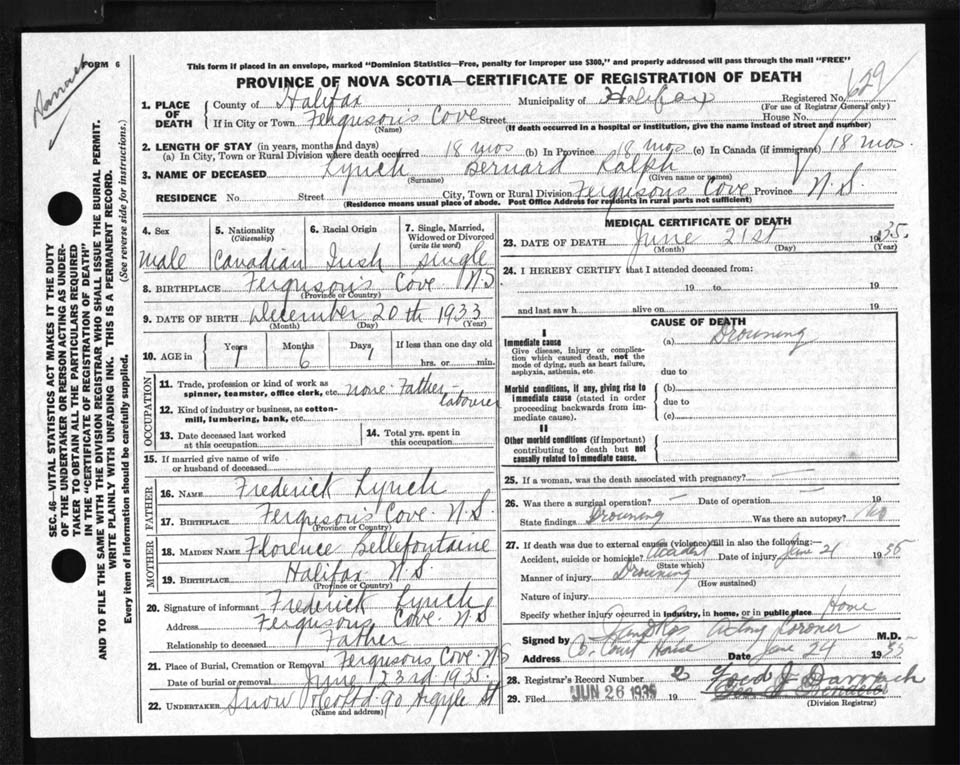 Darrach
FORM 6
This form if placed in an envelope, marked "Dominion Statistics—Free, penalty for improper use $300," and properly addressed will pass through the mail "FREE"
PROVINCE OF NOVA SCOTIA—CERTIFICATE OF REGISTRATION OF DEATH
1. PLACE OF DEATH
County of Halifax Municipality of Halifax Registered No. 629
(For use of Registrar General only)
If in City or Town Ferguson's Cove Street House No.
(Name) (If death occurred in a hospital or institution, give the name instead of street and number)
2. LENGTH OF STAY (in years, months and days)
(a) In City, Town or Rural Division where death occurred 18 mos (b) In Province 18 mos (c) In Canada (if immigrant) 18 mos.
3. NAME OF DECEASED Lynch Bernard Ralph
(Surname) (Given name or names)
RESIDENCE No. Street City, Town or Rural Division Fergusons Cove Province N.S.
(Residence means usual place of abode. Post Office Address for residents in rural parts not sufficient)
4. Sex
male
5. Nationality
(Citizenship)
Canadian
6. Racial Origin
Irish
7. Single, Married, Widowed or Divorced
(write the word)
single
8. BIRTHPLACE Ferguson's Cove N.S
(Province or Country)
9. DATE OF BIRTH December 20th 1933
(Month) (Day) (Year)
10. AGE in Years Months Days If less than one day old
1 6 1 hrs. or min.
OCCUPATION
11. Trade, profession or kind of work as
spinner, teamster, office clerk, etc. none. Father - labourer
12. Kind of industry or business, as cotton-
mill, lumbering, bank, etc.
13. Date deceased last worked
at this occupation
14. Total yrs. spent in
this occupation
15. If married give name of wife
or husband of deceased
FATHER
16. NAME Frederick Lynch
17. BIRTHPLACE Ferguson's Cove. N.S.
(Province or Country)
MOTHER
18. MAIDEN NAME Florence Bellefontaine
19. BIRTHPLACE Halifax N.S.
(Province or Country)
20. Signature of informant Frederick Lynch
Address Fergusons Cove. N.S
Relationship to deceased Father
21. Place of Burial, Cremation or Removal Fergusons Cove. N.S
Date of burial or removal June 23rd 1935
22. UNDERTAKER Snow 90 Argyle St
(Name and address)
MEDICAL CERTIFICATE OF DEATH
23. DATE OF DEATH June 21st 1935
(Month) (Day) (Year)
24. I HEREBY CERTIFY that I attended deceased from:
19 to 19
and last saw h alive on 19
CAUSE OF DEATH
I
Immediate cause
Give disease, injury or complica-
tion which caused death, not the
mode of dying, such as heart failure,
asphyxia, asthenia, etc.
(a) Drowning
due to
Morbid conditions, if any, giving rise to
immediate cause (stated in order
proceeding backwards from im-
mediate cause).
(b)
due to
(c)
II
Other morbid conditions (if important)
contributing to death but not
causally related to immediate cause.
25. If a woman, was the death associated with pregnancy? —
26. Was there a surgical operation? — Date of operation — 19
State findings Drowning Was there an autopsy? No
27. If death was due to external causes (violence) fill in also the following:—
Accident, suicide or homicide? Accident Date of injury June 21 1935
(State which)
Manner of injury Drowning
(How sustained)
Nature of injury
Specify whether injury occurred in industry, in home, or in public place Home
Signed by Acting Coroner M.D.
Address Court House Date June 24 1935
28. Registrar's Record Number 2
29. Filed JUN 26 1935 19 Ford J Darrach
(Division Registrar)
SEC. 46—VITAL STATISTICS ACT MAKES IT THE DUTY
OF THE UNDERTAKER OR PERSON ACTING AS UNDER-
TAKER TO OBTAIN ALL THE PARTICULARS REQUIRED
IN THE "CERTIFICATE OF REGISTRATION OF DEATH"
AND TO FILE THE SAME WITH THE DIVISION REGISTRAR WHO SHALL ISSUE THE BURIAL PERMIT.
WRITE PLAINLY WITH UNFADING INK. THIS IS A PERMANENT RECORD.
Every item of information should be carefully supplied. (See reverse side for instructions.)